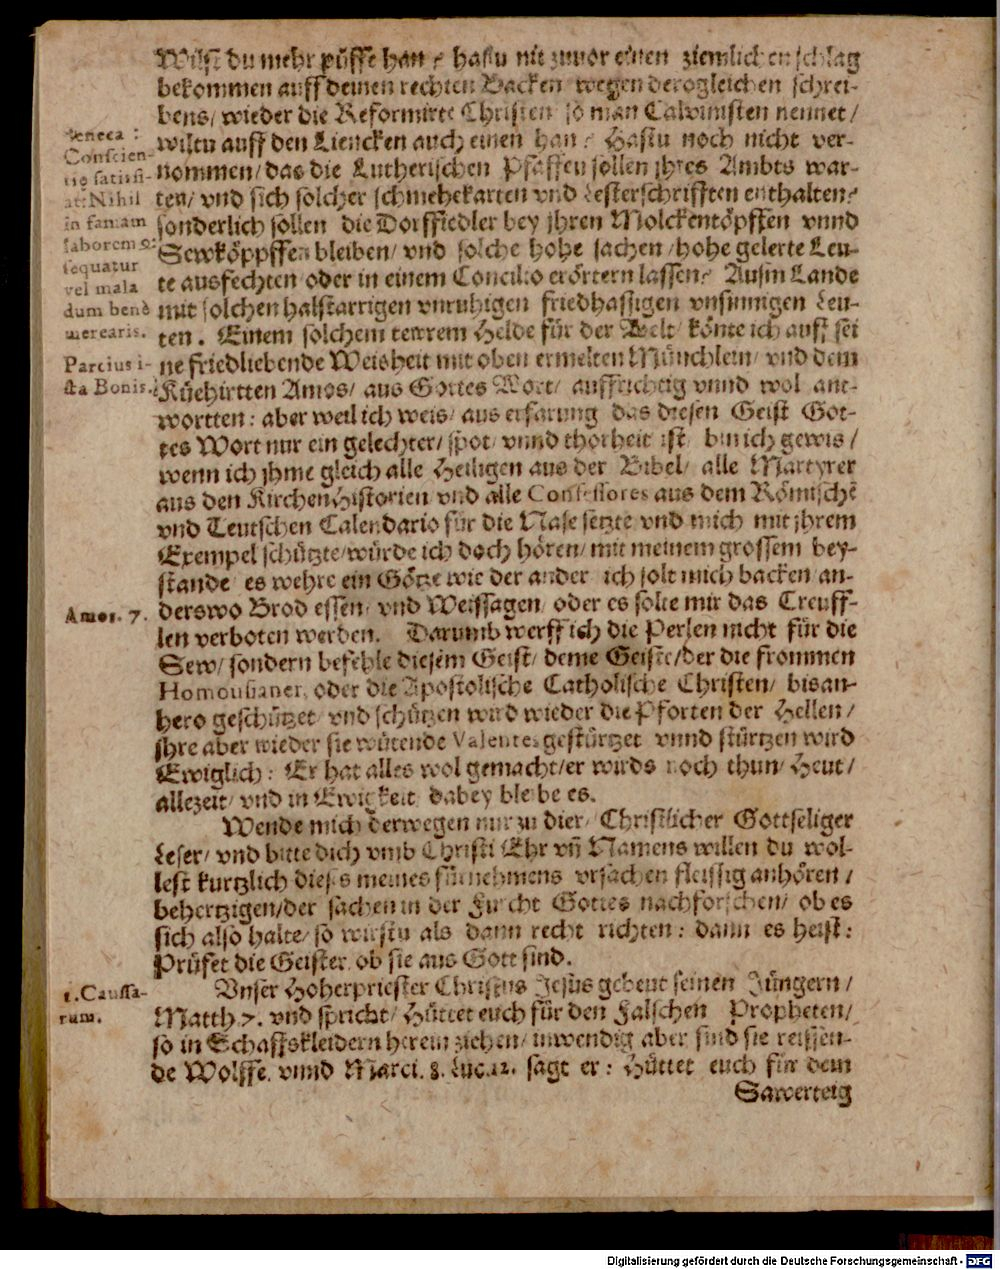 Wilst du mehr püffe han? hastu nit zuvor einen ziemlichen schlag
bekommen auff deinen rechten Backen wegen derogleichen schrei-
bens/ wieder die Reformirte Christen so man Calvinisten nennet/
wiltu auff den Liencken auch einen han? Hastu noch nicht ver-
nommen/ das die Lutherischen Pfaffen sollen jhres Ambts war-
ten/ vnd sich solcher schmehekarten vnd Lesterschrifften enthalten?
sonderlich sollen die Dorffiedler bey jhren Molckentöpffen vnnd
Sewköppffen bleiben/ vnd solche hohe sachen/ hohe gelerte Leu-
te ausfechten oder in einem Concilio erörtern lassen? Ausm Lande
mit solchen halstarrigen vnruhigen friedhassigen vnsinnigen Leu-
ten. Einem solchem tewrem Helde für der Welt/ könte ich auff sei
ne friedliebende Weisheit mit oben ermelten Münchlein/ vnd dem
Küehirtten Amos/ aus Gottes Wort/ auffrichtig vnnd wol ant-
wortten: aber weil ich weis/ aus erfarung das diesen Geist Got-
tes Wort nur ein gelechter/ spot/ vnnd thorheit ist/ bin ich gewis/
wenn ich jhme gleich alle Heiligen aus der Bibel/ alle Martyrer
aus den KirchenHistorien vnd alle Confessores aus dem Römischē
vnd Teutschen Calendario für die Nase setzte vnd mich mit jhrem
Exempel schützte/ würde ich doch hören/ mit meinem grossem bey-
stande/ es wehre ein Götze wie der ander/ ich solt mich backen/ an-
derswo Brod essen/ vnd Weissagen/ oder es solte mir das Creuff-
len verboten werden. Darumb werff ich die Perlen nicht für die
Sew/ sondern befehle diesem Geist/ deme Geiste/ der die frommen
Homousianer, oder die Apostolische Catholische Christen/ bisan-
hero geschützet/ vnd schützen wird wieder die Pforten der Hellen/
jhre aber wieder sie wütende Valentes gestürtzet vnnd stürtzen wird
Ewiglich: Er hat alles wol gemacht/ er wirds noch thun/ Heut/
allezeit/ vnd in Ewigkeit/ dabey bleibe es.
Wende mich derwegen nur zu dier/ Christlicher Gottseliger
Leser/ vnd bitte dich vmb Christi Ehr vn̄ Namens willen du wol-
lest kurtzlich dieses meines fürnehmens vrsachen fleissig anhören/
behertzigen/ der sachen in der Furcht Gottes nachforschen/ ob es
sich also halte/ so wirstu als dann recht richten: dann es heist:
Prüfet die Geister/ ob sie aus Gott sind.
Vnser Hoherpriester Christus Jesus gebeut seinen Jüngern/
Matth. 7. vnd spricht/ Hüttet euch für den Falschen Propheten/
so in Schaffskleidern herein ziehen/ inwendig aber sind sie reissen-
de Wolffe. vnnd Marci. 8. Luc. 12. sagt er: Hüttet euch für dem
Sawerteig
Seneca:
Conscien-
tiæ satisfi-
at: Nihil
in famam
laborem9:
sequatur
vel mala
dum benè
merearis.
Parcius i-
sta Bonis.
Amos. 7.
1. Caussa-
rum.
Digitalisierung gefördert durch die Deutsche Forschungsgemeinschaft - DFG